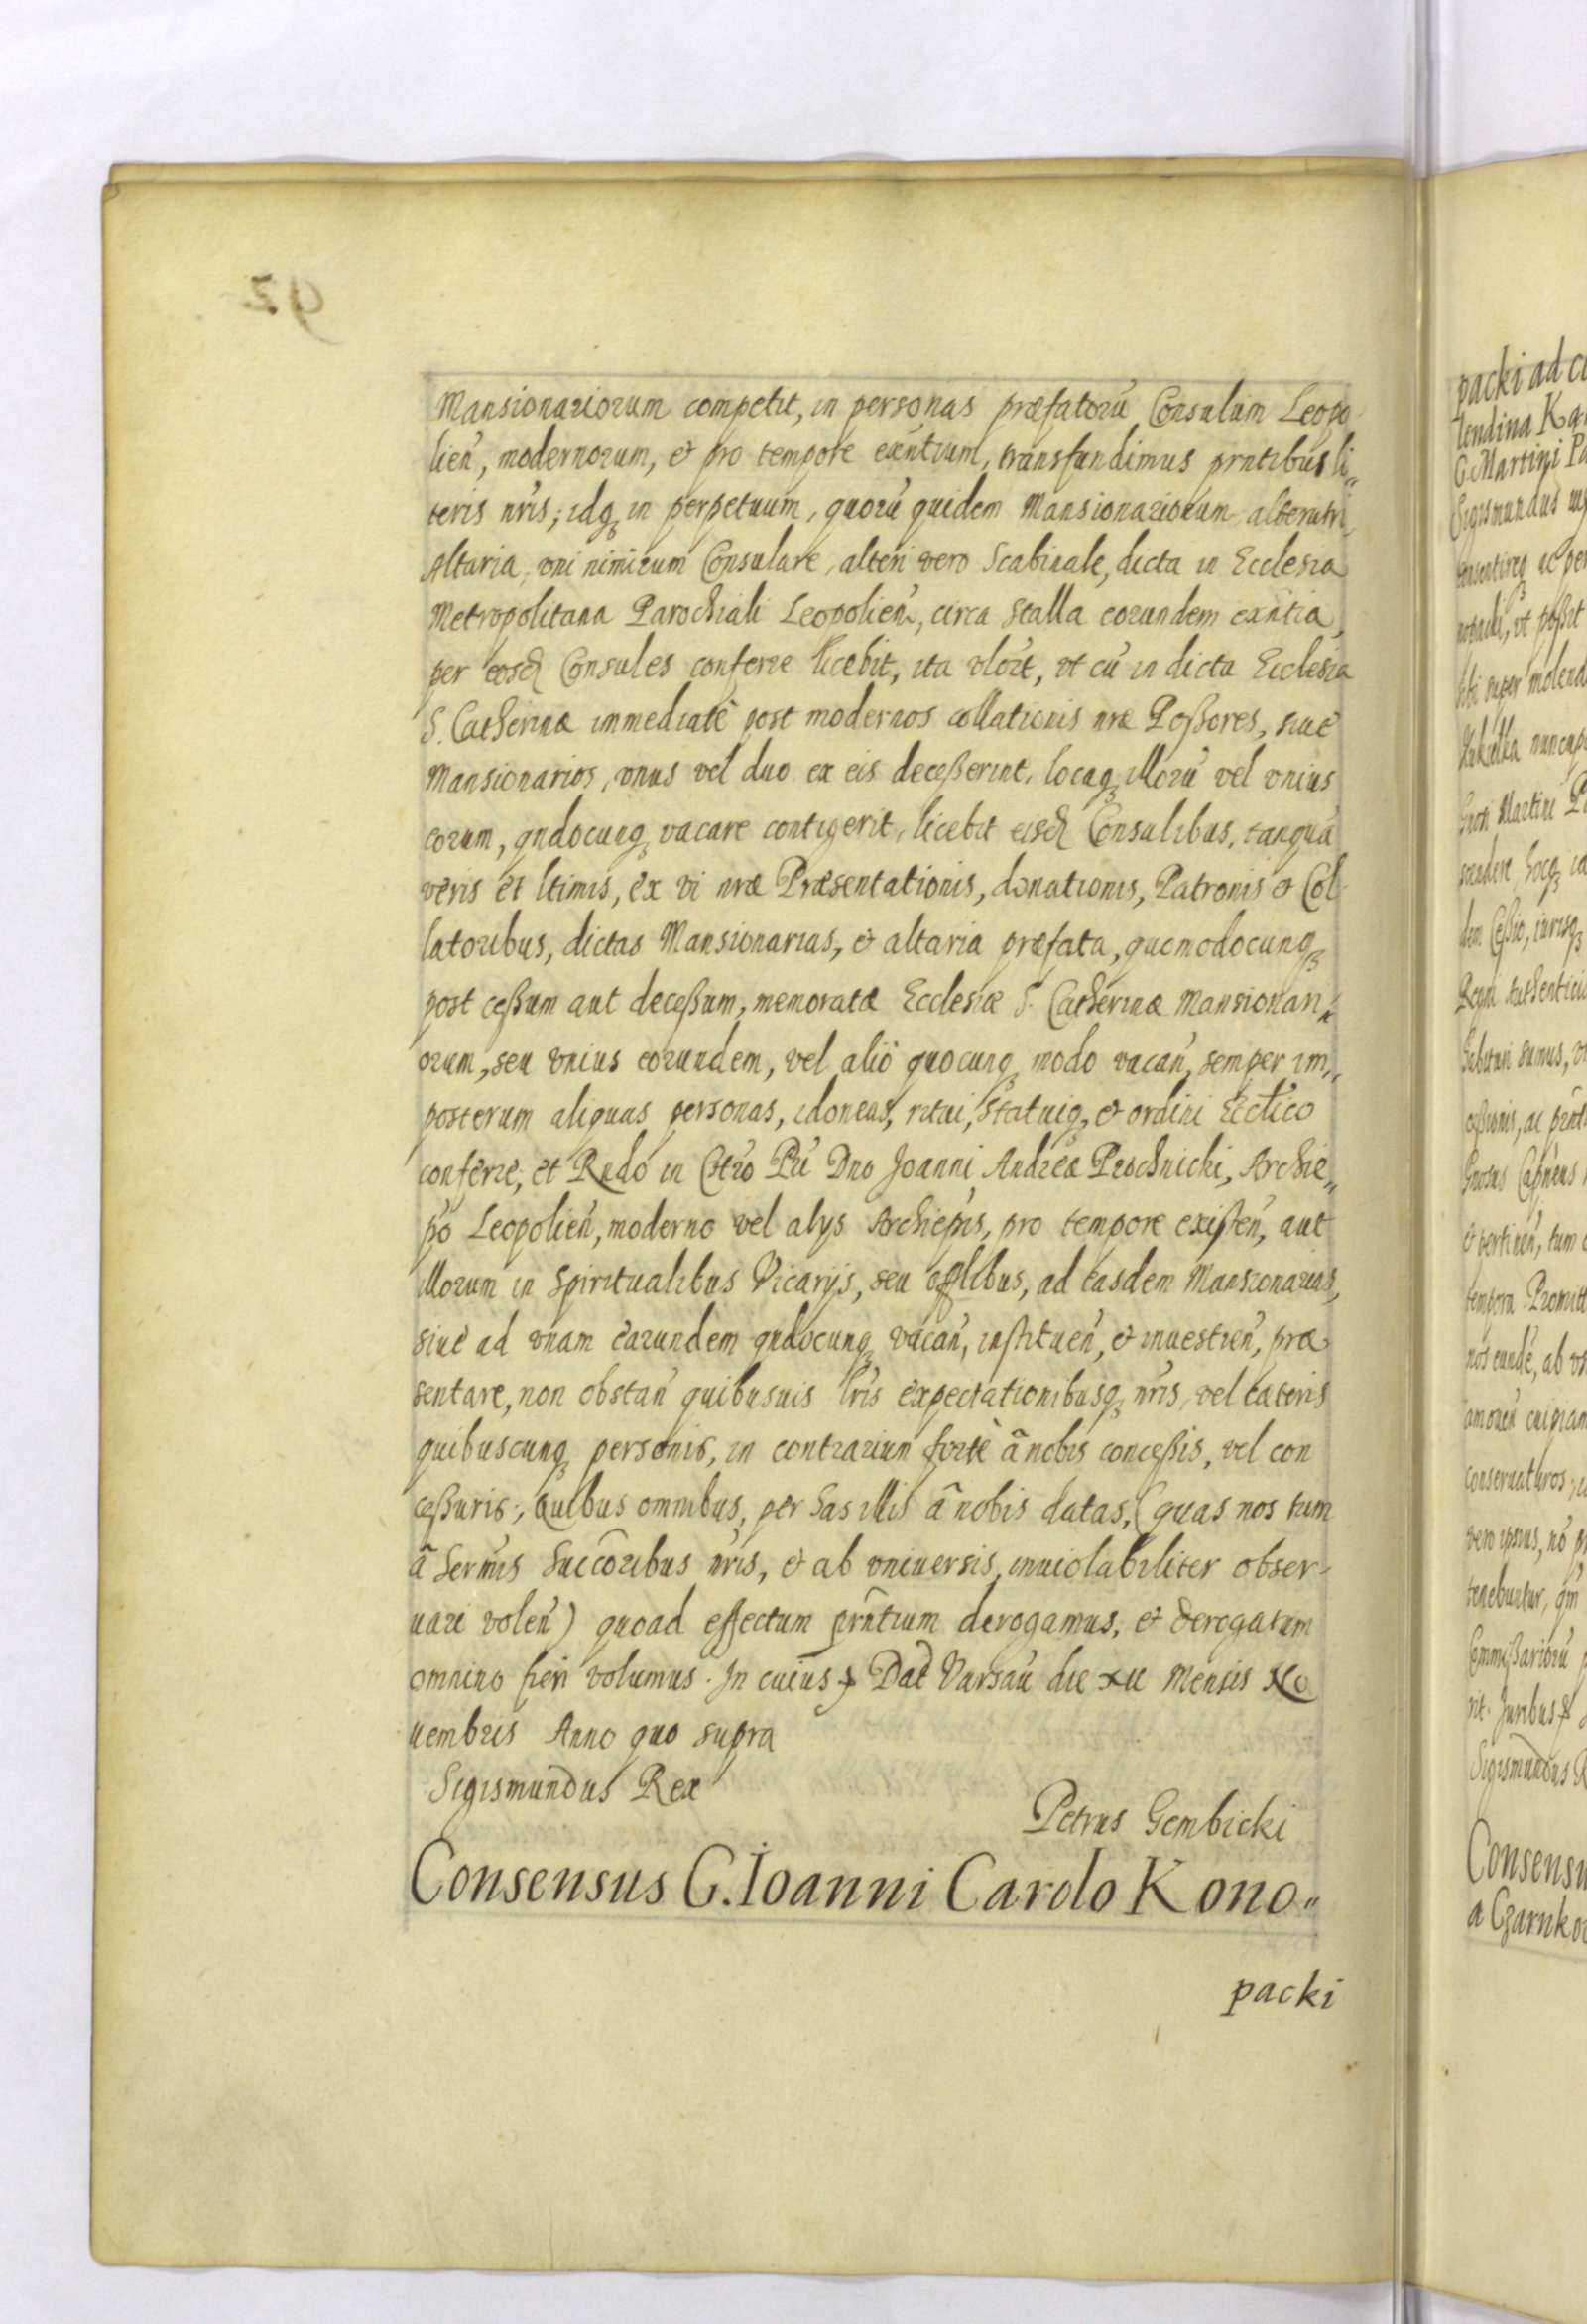 Mansionariorum competit, in personas præfatorũ Consulum Leopo
lien̄, modernorum, & pro tempore exn̄tium, transfundimus prn̄tibus li„
teris nr̄is; idq₃ in perpetuum, quorũ quidem Mansionariorum alterutri
Altaria, vni nimirum Consulare, alteri vero Scabinale, dicta in Ecclesia
Metropolitana Parochiali Leopolien̄, circa Stalla eorundem exn̄tia,
per eosd̄ Consules conferre licebit, ita vt cũ in dicta Ecclesia
S. Catherinæ immediatè post modernos collationis nr̄æ Poßores, siue
Mansionarios, vnus vel duo ex eis deceßerint, locaq₃ illorũ vel vnius
eorum, qn̄docunq₃ vacare contigerit, licebit eisd̄ Consulibus, tanquã
veris et ltimis, ex vi nr̄æ Præsentationis, donationis, Patronis & Col
latoribus, dictas Mansionarias, & altaria præfata, quomodocunq₃
post ceßum aut deceßum, memoratæ Ecclesiæ S. Catherinæ Mansionari„
orum, seu vnius eorundem, vel alio quocunq₃ modo vacan̄, semper im„
posterum aliquas personas, idoneas, ritui, statuiq₃, & ordini Ecctico
conferre; et Rndo in Chro Pri Dno Joanni Andreæ Prochnicki, Archie„
p̄o Leopolien̄, moderno vel alys Archiepis, pro tempore existen̄, aut
illorum in Spiritualibus Vicarijs, seu offlibus, ad easdem Mansionarias,
siue ad vnam earundem qn̄docunq₃ vacan̄, instituen̄, & inuestien̄, præ
sentare, non obstan̄ quibusuis lr̄is expectationibusq₃ nr̄is, vel cæteris
quibuscunq₃ personis, in contrarium fortè à nobis conceßis, vel con
ceßuris; Quibus omnibus, per has illis à nobis datas, (quas nos tum
à Sermis Succoribus nr̄is, & ab vniuersis, inuiolabiliter obser-
uari volen̄) quoad effectum prn̄tium derogamus, & derogatum
omnino fieri volumus. In cuius Dat Varsau die xii Mensis No
uembris Anno quo supra
Sigismundus Rex
Petrus Gembicki
Consensus G. Ioanni Carolo Kono„
packi